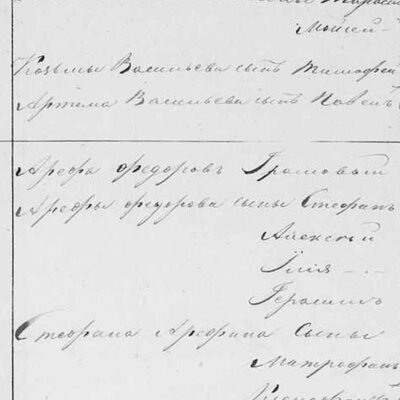 Мойсей
Козьмы Васильева сынъ Тимофей
Артема Васильева сынъ Павелъ
Арефа Федоровъ
Арефы Федорова сыны Стефанъ
Алексѣй
Илія
Герасимъ
Стефана Арефьева сыны
Митрофанъ